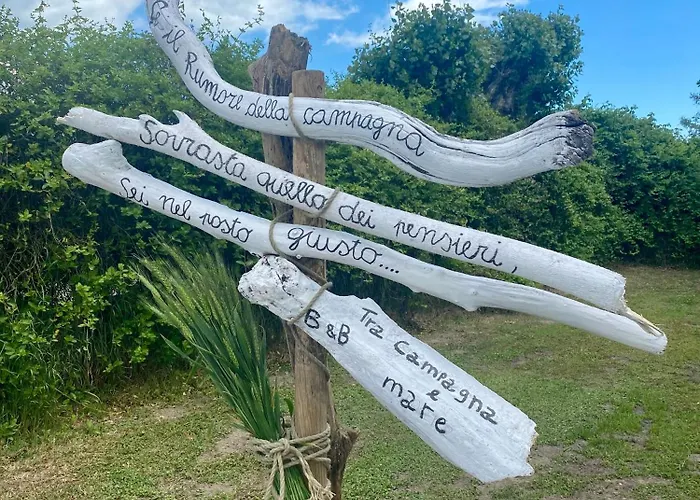 Se il Rumore della campagna
Sovrasta quello dei pensieri,
Sei nel posto giusto....
B&B
Tra campagna
e
mare